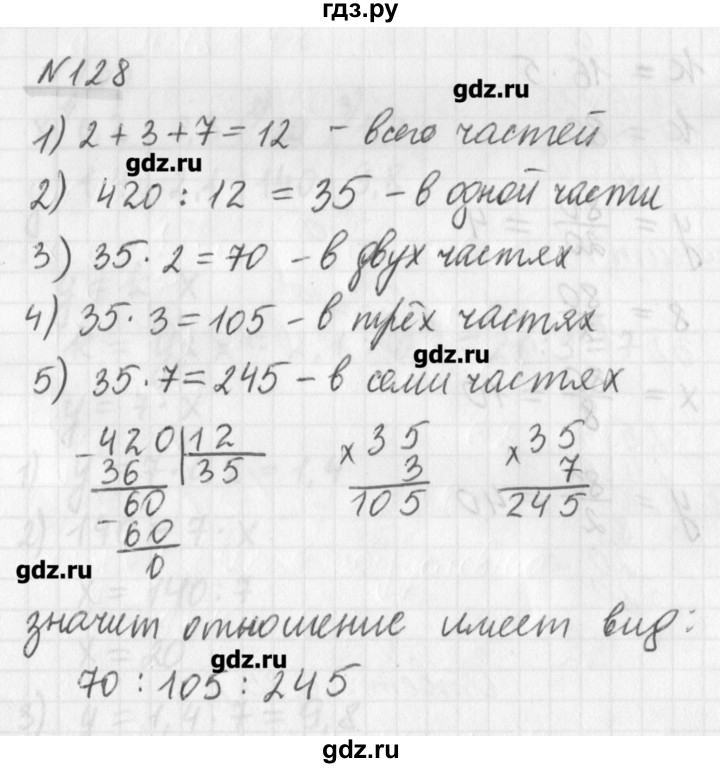 гдз.ру
N128
gdz.ru
1) 2 + 3 + 7 = 12 - всего частей
gdz.ru
2) 420 : 12 = 35 - в одной части
3) 35 · 2 = 70 - в двух частях
4) 35 · 3 = 105 - в трёх частях
gdz.ru
5) 35 · 7 = 245 - в семи частях
- 420 | 12
36 | 35
60
- 60
0
× 35
3
105
× 35
7
245
gdz.ru
значит отношение имеет вид:
gdz.ru
70 : 105 : 245
gdz.ru